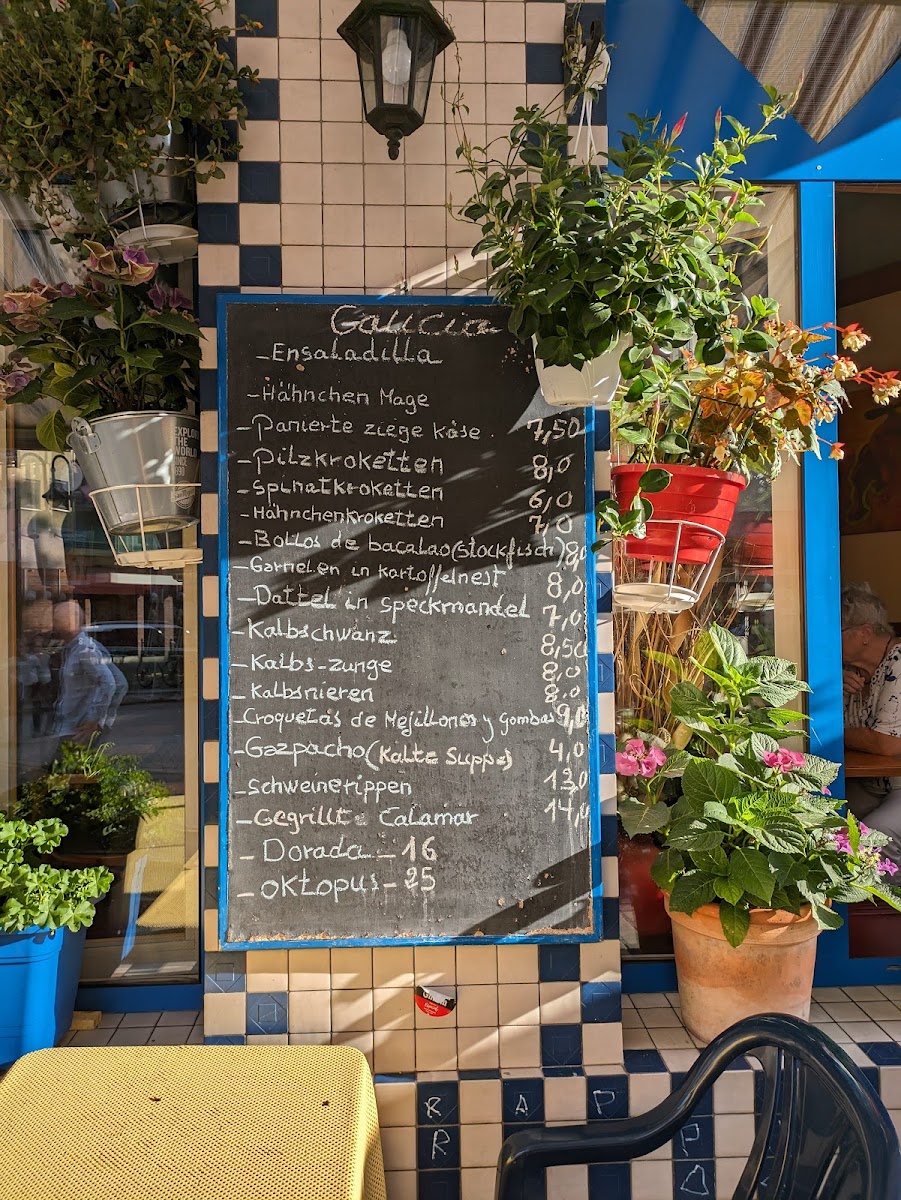 Galicia
- Ensaladilla
- Hähnchen Mage
- Panierte ziege käse. 7,50
- Pilzkroketten 8,0
- Spinatkroketten 6,0
- Hähnchenkroketten 7,0
- Bollos de bacalao (stockfisch) 8,0
- Garnelen in kartoffelnest 8,0
- Dattel in speckmandel 7,0
- Kalbschwanz 8,50
- Kalbs-zunge 8,0
- Kalbsnieren 8,0
- Croquetas de Mejillones y gambas 9,0
- Gazpacho (Kalte Suppe) 4,0
- Schweinerippen 13,0
- Gegrillte Calamar 14,0
- Dorada - 16
- Oktopus - 25
EXPLORE
THE
WORLD
R A P
R P